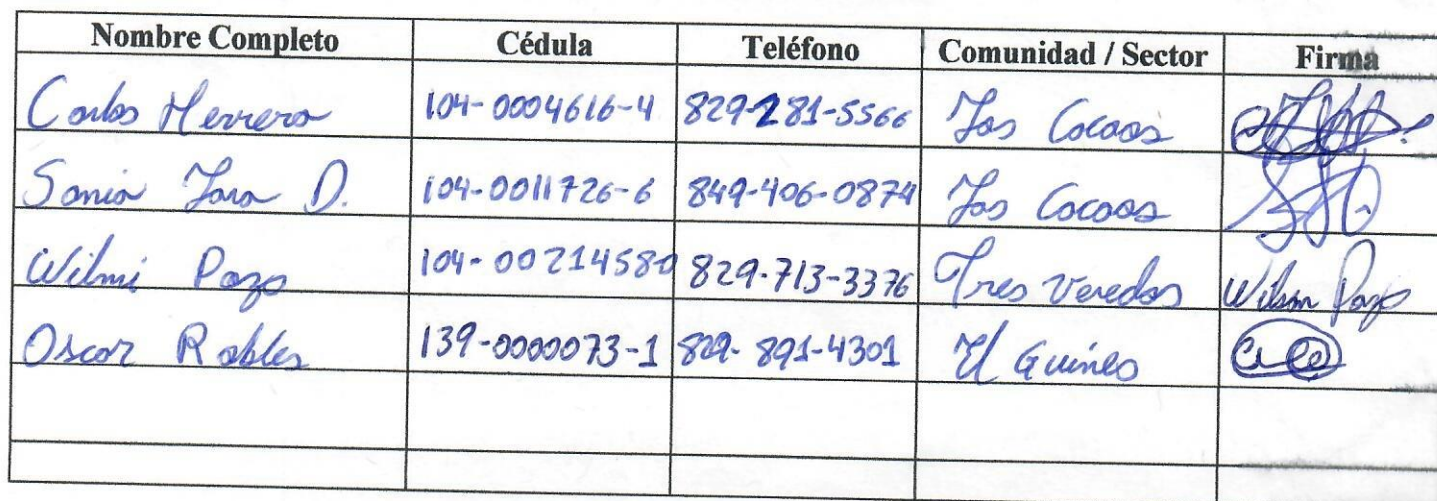 Nombre Completo Cédula Teléfono Comunidad / Sector Firma
Carlos Herrera 104-0004616-4 829-281-5566 Los Cacaos
Sonia Lara D. 104-0011726-6 849-406-0874 Los Cacaos
Wilmi Pozo 104-00214580 829-713-3376 Tres Veredas Wilson Pozo
Oscar Robles 139-0000073-1 829-891-4301 El Guineo